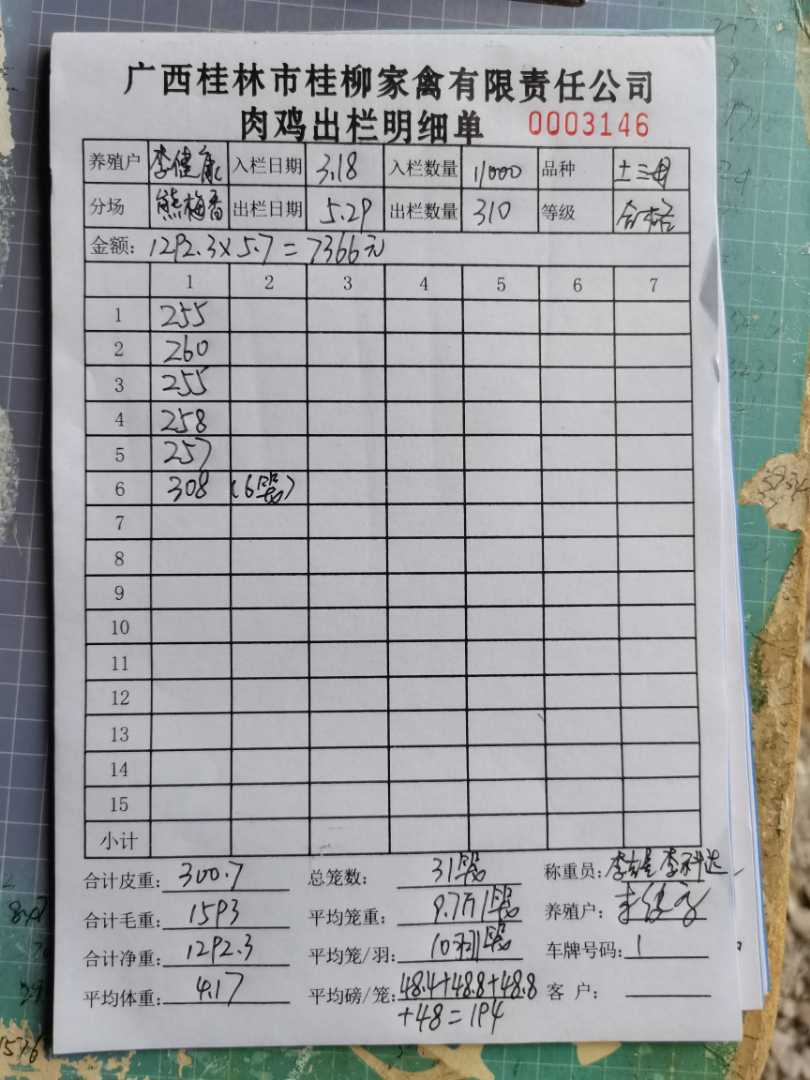 广西桂林市桂柳家禽有限责任公司
肉鸡出栏明细单 0003146
养殖户 李健康 入栏日期 3.18 入栏数量 11000 品种 土三母
分场 熊梅香 出栏日期 5.29 出栏数量 310 等级 合格
金额: 1292.3×5.7=7366元
1 2 3 4 5 6 7
1 255
2 260
3 255
4 258
5 257
6 308 (6笼)
7
8
9
10
11
12
13
14
15
小计
合计皮重: 300.7 总笼数: 31笼 称重员:
合计毛重: 1593 平均笼重: 9.7斤/笼 养殖户:
合计净重: 1292.3 平均笼/羽: 10羽/笼 车牌号码: 1
平均体重: 4.17 平均磅/笼: 48.4+48.8+48.8 客 户:
+48=194